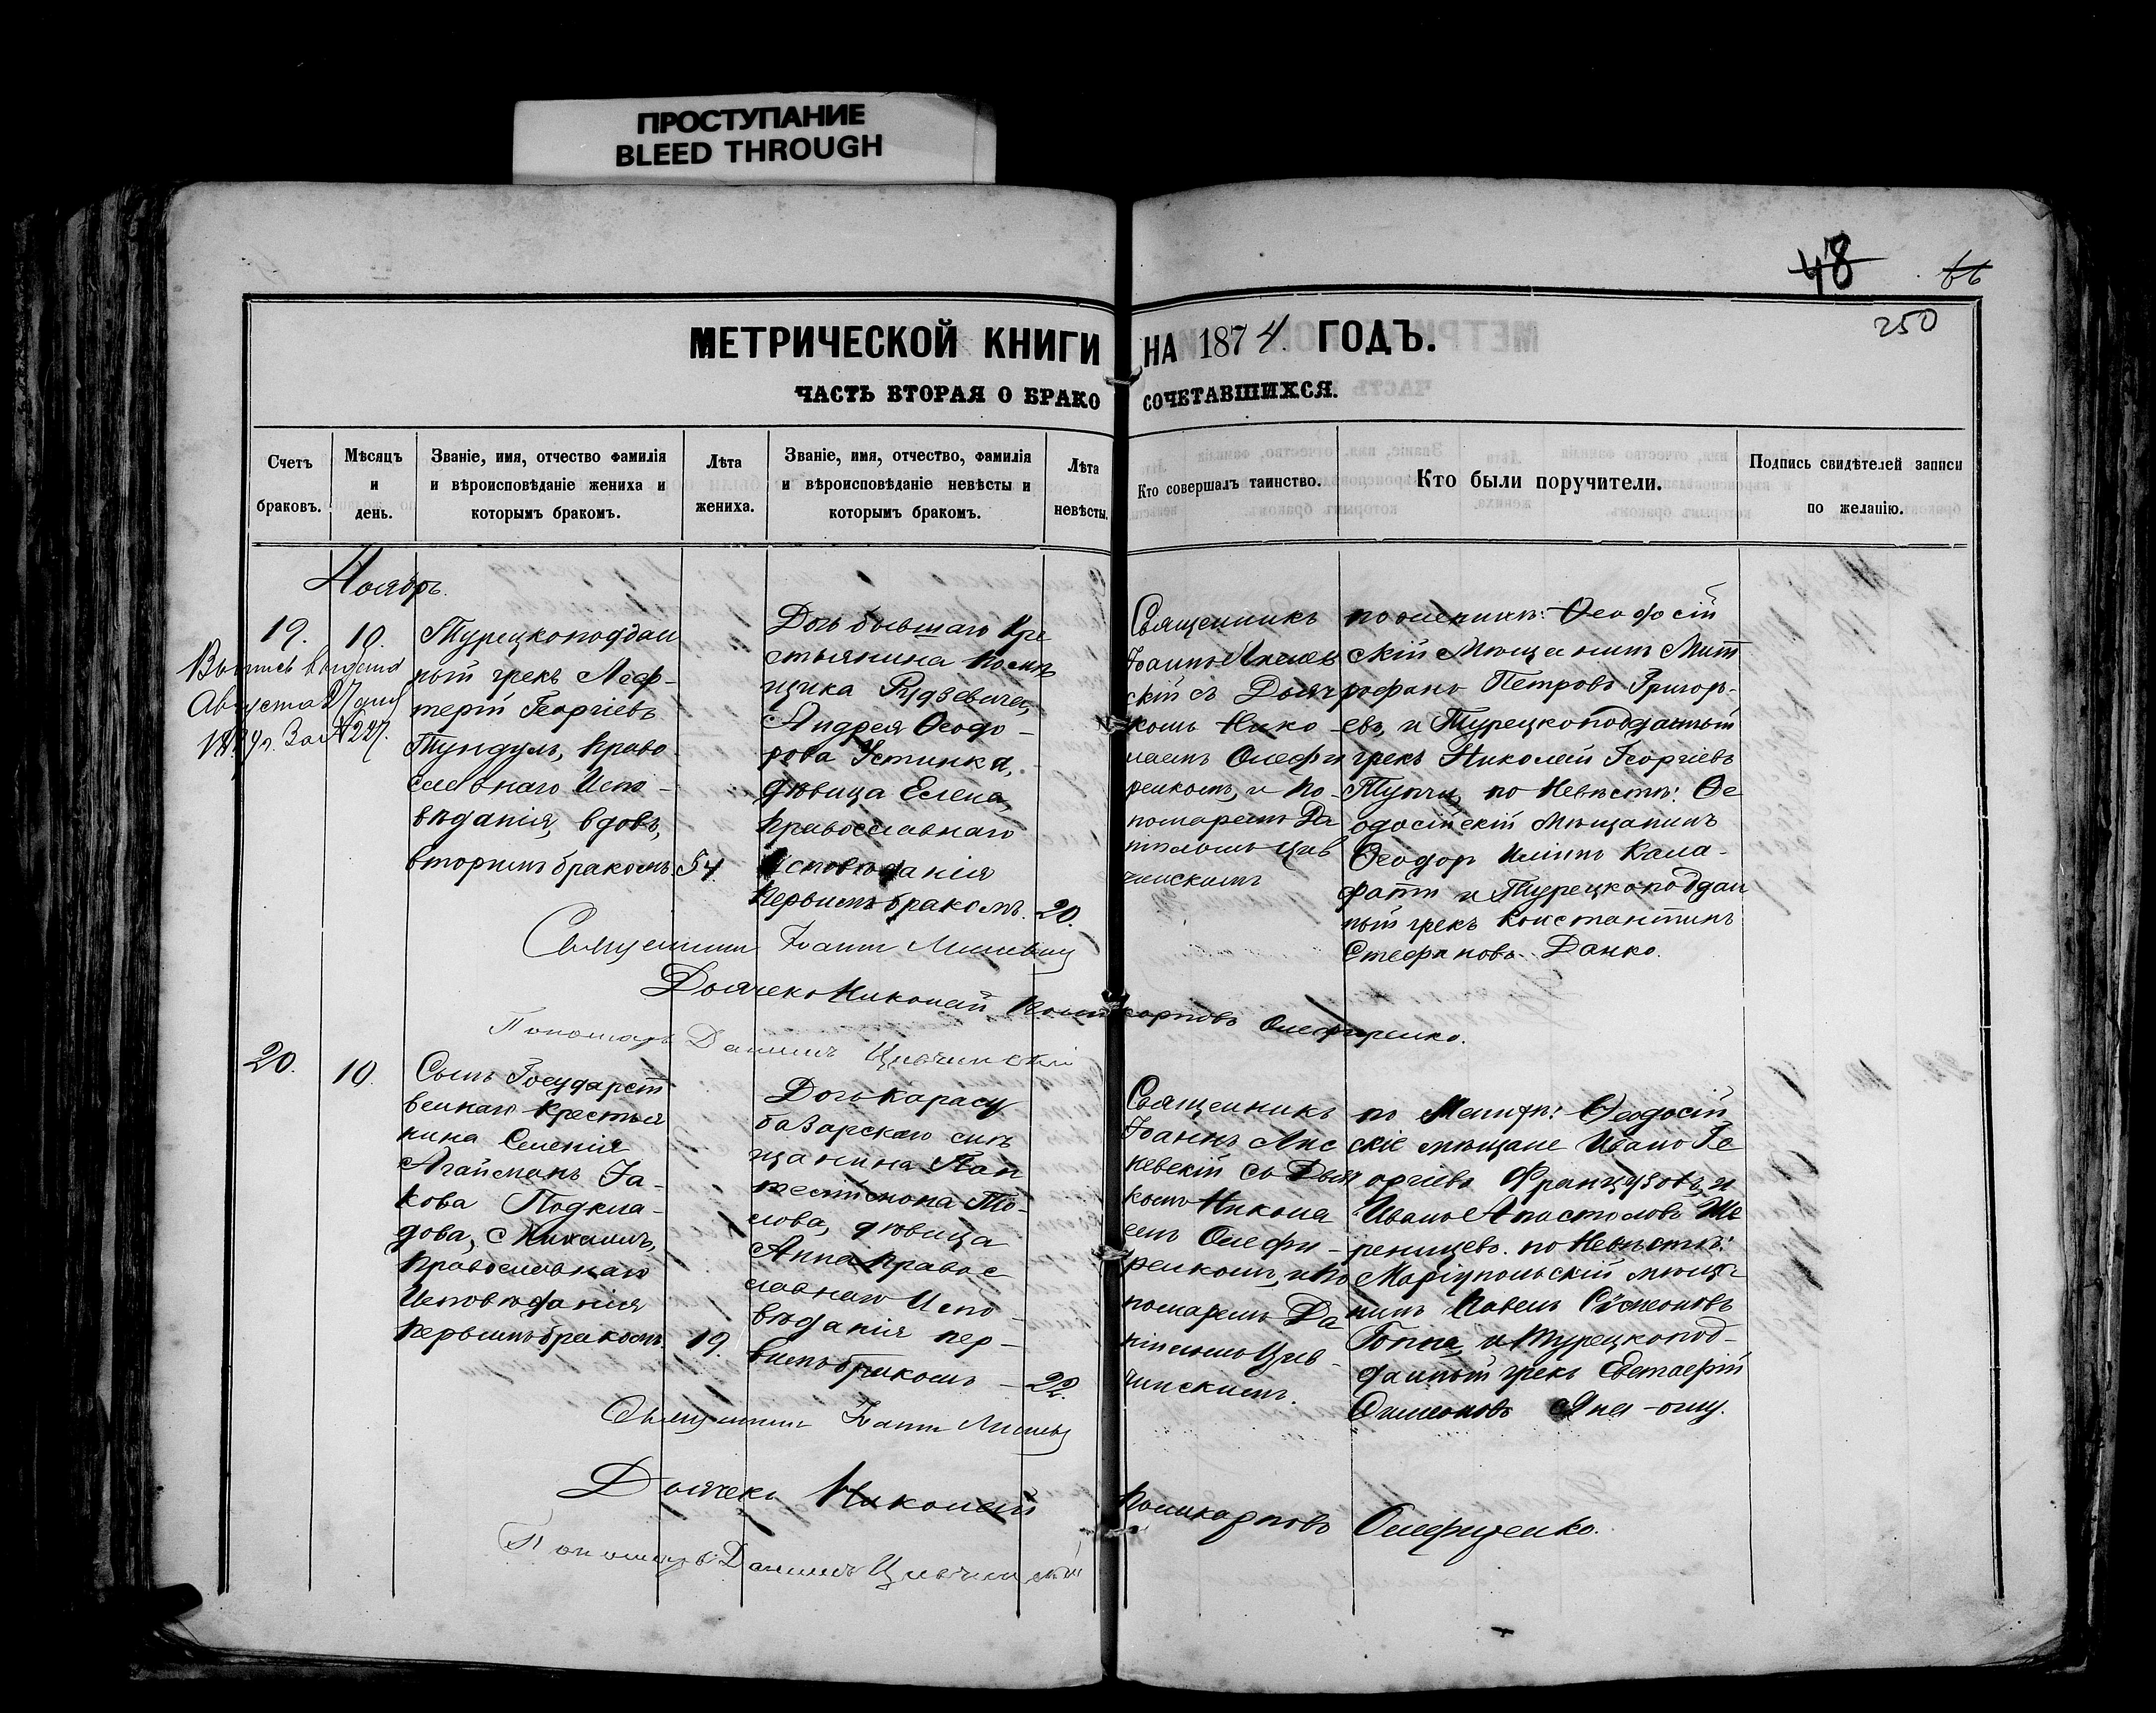 ПРОСТУПАНИЕ
BLEED THROUGH
48
250
МЕТРИЧЕСКОЙ КНИГИ НА 1874 ГОДЪ.
ЧАСТЬ ВТОРАЯ О БРАКОСОЧЕТАВШИХСЯ.
Счетъ браковъ.
Мѣсяцъ и день.
Званіе, имя, отчество фамилія
и вѣроисповѣданіе жениха и
которымъ бракомъ.
Лѣта жениха.
Званіе, имя, отчество, фамилія
и вѣроисповѣданіе невѣсты и
которымъ бракомъ.
Лѣта невѣсты.
Кто совершалъ таинство.
Кто были поручители.
Подпись свидѣтелей записи
по желанію.
Ноябрь.
19.
10.
Выпись выдана
Августа 27 дня
за № 227.
Турецкоподдан
ный грекъ Леф-
терій Георгіевъ
Тундулъ, Право
славнаго Испо-
вѣданія, вдовъ,
вторымъ бракомъ
54
Дочь бывшаго Кре
стьянина
Андрея Ѳеодо-
рова Устинка,
дѣвица Елена,
Православнаго
Исповѣданія
Первымъ бракомъ.
20.
Священникъ
Іоаннъ
скій съ Дьяч
комъ Нико
лаемъ Олефи
ренкомъ, и По-
номаремъ Да
ніиломъ Цив
чинскимъ
по женихѣ: Ѳеодосій
скій Мѣщанинъ Мит
рофанъ Петровъ Григорь-
евъ, и Турецкоподданный
грекъ Николай Георгіевъ
по Невѣстѣ: Ѳе
одосійскій Мѣщанинъ
Ѳеодоръ Ильинъ Кала-
фати и Турецкоподдан
ный грекъ Константинъ
Стефановъ Данко.
Священникъ Іоаннъ
Дьячекъ Николай Поликарповъ Олефиренко.
Пономарь Даніилъ Цивчинскій
20.
10.
Сынъ Государст
веннаго Крестья
нина Селенія
Агайманъ Іа-
кова Подкла-
дова, Михаилъ,
Православнаго
Исповѣданія
Первымъ бракомъ.
19.
Дочь Карасу
базарскаго мѣ
щанина Пан
телеймона То-
лова, дѣвица
Анна Правос
лавнаго Испо-
вѣданія пер-
вымъ бракомъ
22.
Священникъ
Іоаннъ Лис
невскій съ Дьяч
комъ Никола
емъ Олефи-
ренкомъ, и По
номаремъ Да
ніиломъ Цив-
чинскимъ.
по Женихѣ: Ѳеодосій
скіе мѣщане Иванъ Ге
оргіевъ Французовъ, и
Иванъ Апостоловъ Ше
ренщевъ. по Невѣстѣ:
Маріупольскій мѣща
нинъ Павелъ Симеоновъ
и Турецкопод-
данный грекъ Евстаѳій
Симеоновъ
Священникъ Іоаннъ
Дьячекъ Николай Поликарповъ Олефиренко.
Пономарь Даніилъ Цивчинскій